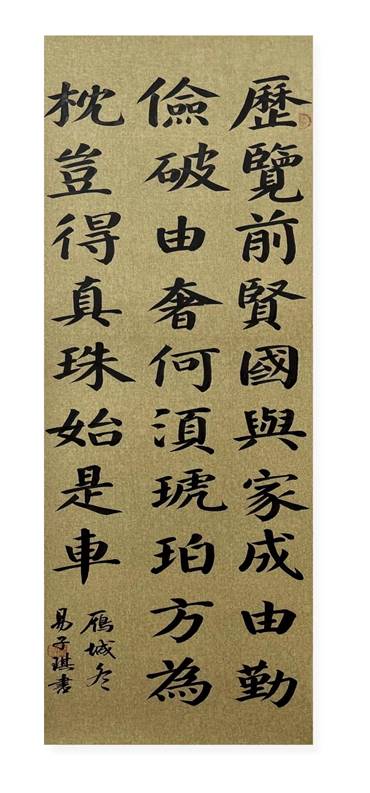 歷覽前賢國與家成由勤
儉破由奢何須琥珀方為
枕豈得真珠始是車
鴈城冬
易子琪書